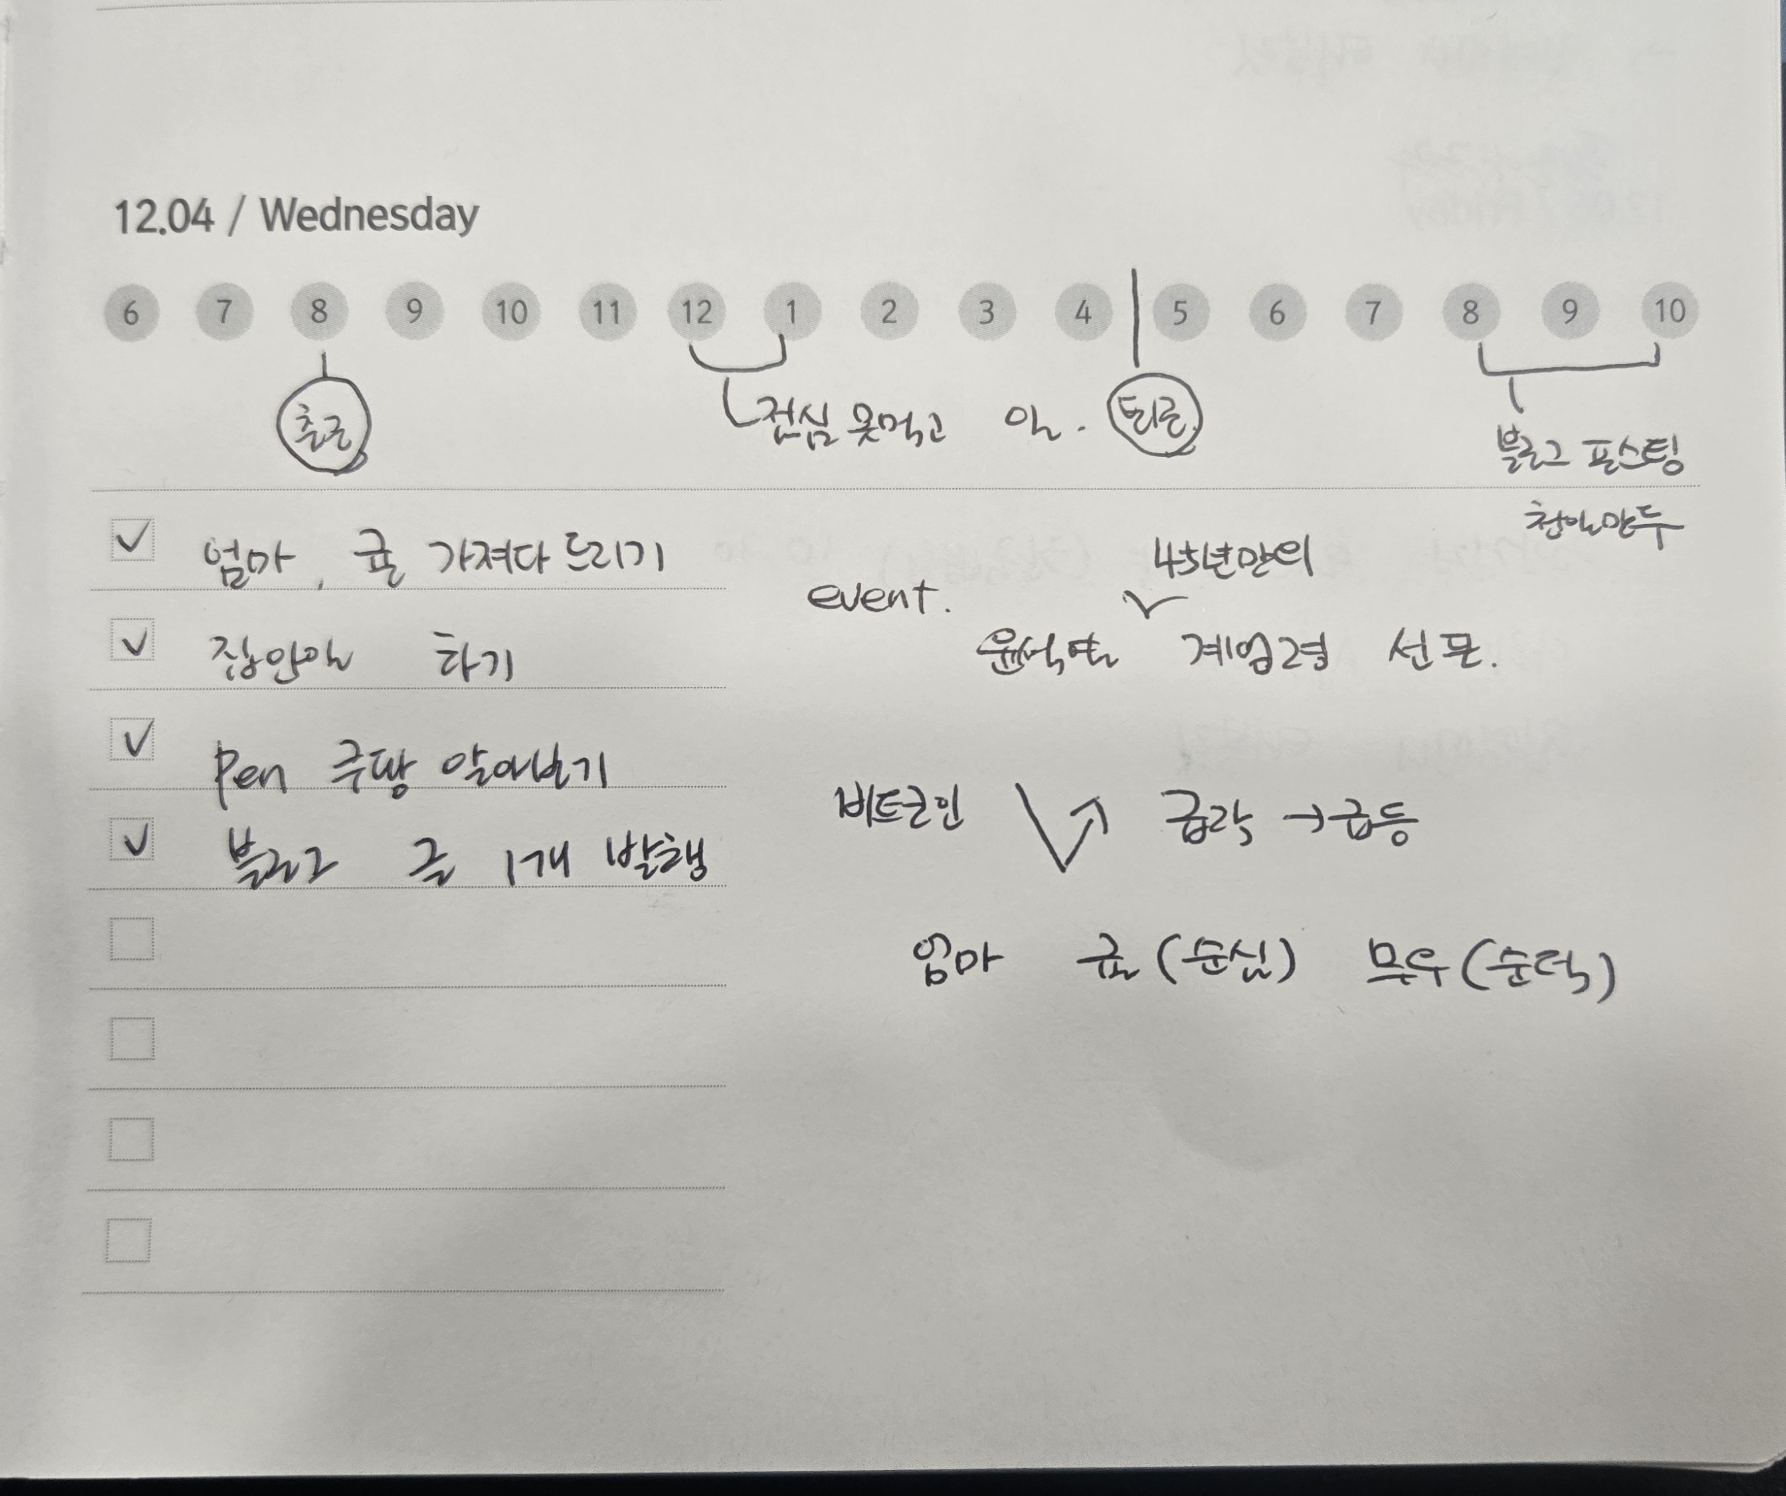 12.04 / Wednesday
6 7 8 9 10 11 12 1 2 3 4 5 6 7 8 9 10
출근
점심 못먹고 일.
퇴근.
블로그 포스팅
청일만두
엄마, 귤 가져다 드리기
집안일 하기
Pen 쿠팡 알아보기
블로그 글 1개 발행
event.
45년만의
윤석열 계엄령 선포.
비트코인 급락 → 급등
엄마 귤 (순심) 무우 (순덕)